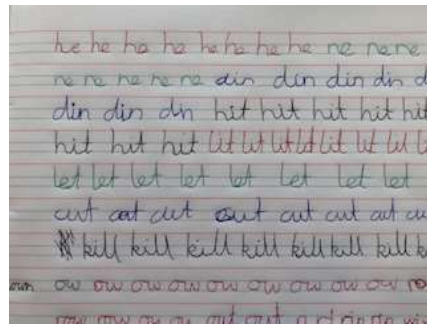 he he he he he he he he ne ne ne
ne ne ne ne ne din din din din d
din din din hit hit hit hit hit
hit hit hit lit lit lit lit lit lit lit
let let let let let let let let
cut cut cut cut cut cut cut cu
kill kill kill kill kill kill kill k
own ow ow ow ow ow ow ow ow ow
row row ow ow out out